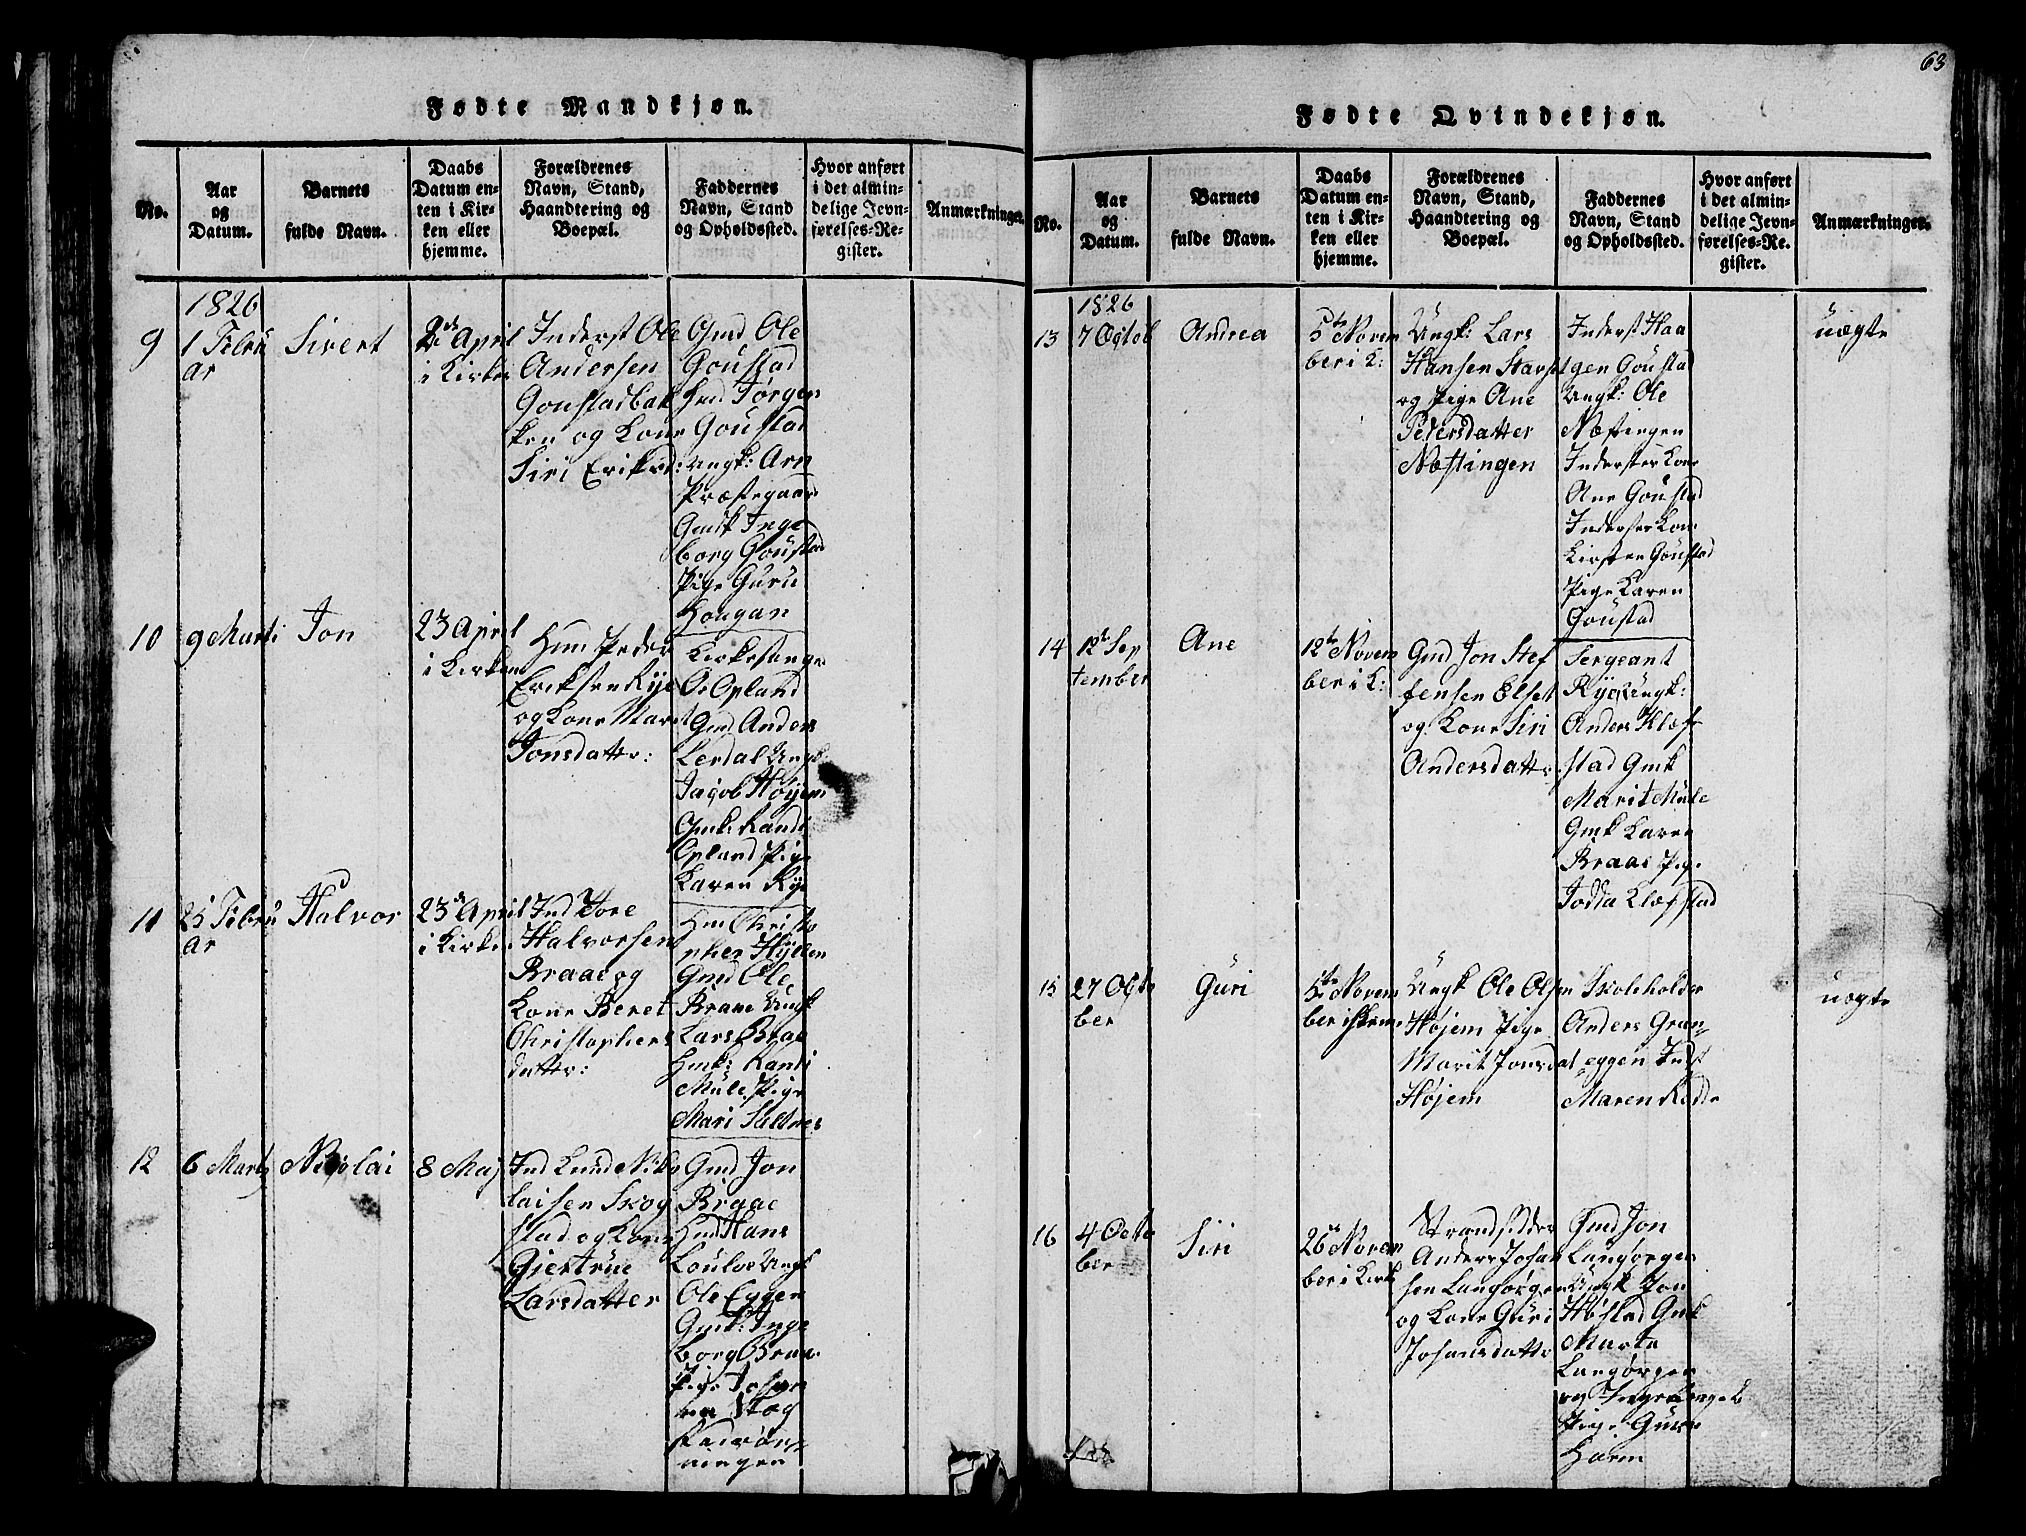 Fødte Mandkjøn.
No.
Aar
og
Datum.
Barnets
fulde Navn.
Daabs
Datum en-
ten i Kir-
ken eller
hjemme.
Forældrenes
Navn, Stand,
Haandtering og
Boepæl.
Faddernes
Navn, Stand
og Opholdssted.
Hvor anført
i det almin-
delige Jevn-
førelses-Re-
gister.
Anmærkninger.
1826
9
1 Febru
ar
Sivert
2de April
i Kirken
Inderst Ole
Andersen
Goustadbak
ken og Kone
Siri Eriksd:
Gmd Ole
Goustad
Hmd Jørgen
Goustad
Ungk: Arn
Præstegaard
Gmdk Inge
borg Goustad
Pige Guru
Hougan
10
9 Marti
Jon
23 April
i Kirken
Hmd Peder
Eriksen Rye
og Kone Maret
Jonsdattr:
Kirkesanger
O: Opland
Gmd Anders
Lerdal Ungk
Jacob Høyem
Gmk: Randi
Opland Pige
Karen Rye
11
25 Febru
ar
Halvor
23de April
i Kirken
Ind Tore
Halvorsen
Braae og
Kone Beret
Christophers
datter:
Hm Christo
pher Hyllen
Gmd Ole
Braae Ungk
Lars Braae
Hmk: Randi
Mule Pige
Mari Saltnes
12
6 Marts
Nicolai
8 Maj
Ind Knud Niko
laisen Skog
stad og Kone
Giertrue
Larsdatter
Gmd Jon
Braae
Hmd Hans
Loulve Ungk
Ole Eggen
Gmk: Inge
borg Braae
Pige Johan
na Skog
stadrøn-
ningen
63
Fødte Qvindekjøn.
No.
Aar
og
Datum.
Barnets
fulde Navn.
Daabs
Datum en-
ten i Kir-
ken eller
hjemme.
Forældrenes
Navn, Stand,
Haandtering og
Boepæl.
Faddernes
Navn, Stand
og Opholdssted.
Hvor anført
i det almin-
delige Jevn-
førelses-Re-
gister.
Anmærkninger.
1826
13
7 Octob
Andrea
5te Novem
ber i K:
Ungk: Lars
Hansen Stavset
og Pige Ane
Pedersdatter
Næstingen
Inderst Haa
gen Goustad
Ungk: Ole
Næstingen
Inderster Kone
Ane Goustad
Inderster Kone
Kirsten Goustad
Pige Karen
Goustad
uægte
14
12te Sep
tember
Ane
12te Novem
ber i K:
Gmd Jon Stef
fensen Elset
og Kone Siri
Andersdattr.
Sergeant
Rye Ungk:
Anders Klæf
stad Gmk
Marit Mule
Gmk Karen
Braae Pige
Jodda Klæfstad
15
27 Octo
ber
Guri
5te Novem
ber i Kirken
Ungk Ole Olsen
Højem Pige
Marit Jonsdat
Højem
Skoleholder
Anders Gran-
eggen Indst
Maren Rødde
uægte
16
4 Octo
ber
Siri
26de Novem
ber i Kirk
Strandsidder
Anders Johan
sen Langørgen
og Kone Guri
Johansdattr
Gmd Jon
Langørgen
Ungk Jon
Høstad Gmk
Marte
Langørgen
Pige Guru
Harm